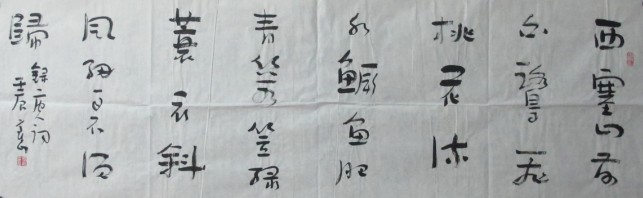 西塞山前
白鷺飛
桃花流
水鱖魚肥
青箬笠綠
蓑衣斜
風細雨不須
歸
錄唐人詞
壬辰